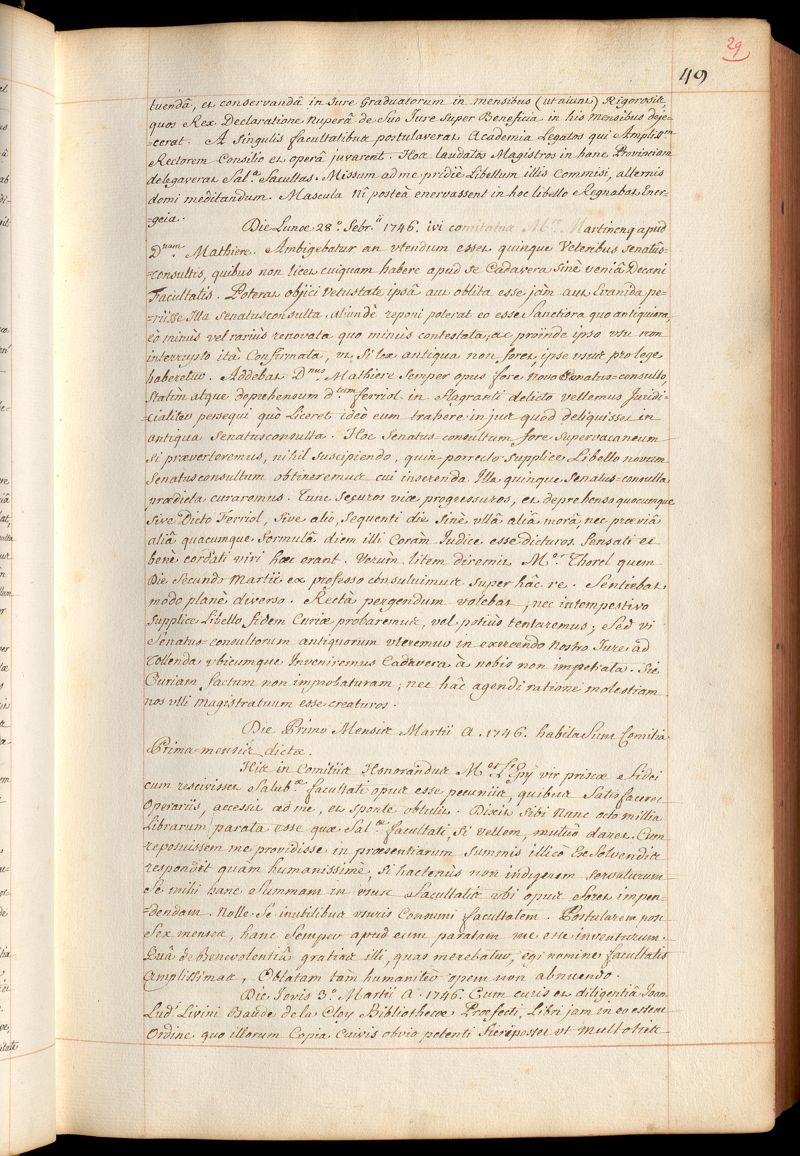 29
49
tuendâ, et conservandâ in Jure Graduatorum in mensibus (ut aiunt) Rigorosis,
quos Rex Declaratione nuperâ de Suo Jure Super Beneficia in his mensibus deje-
-cerat. A Singulis facultatibus postulaverat Academia Legatos qui Ampliss.um
Rectorem Consilio et operâ juvarent. Hos laudatos Magistros in hanc Provinciam
delegaverat Sal.a Facultas. Missum ad me pridie Libellum illis Commisi, alternis
domi meditandum. Mascula nî posteà enervassent in hoc libello Regnabat Ener-
-geia.
Die Lunæ 28.a febr.ii 1746. ivi comitatus M.ro Martinenq apud
D.num Mathiere. Ambigebatur an utendum esset quinque Veteribus Senatûs-
-consultis, quibus non licet cuiquam habere apud se Cadavera Sinè veniâ Decani
Facultatis. Poterat objici Vetustate ipsâ aut oblita esse jam aut Evanida pe-
-riisse Illa Senatusconsulta. Aliundè reponi poterat eo esse Sanctiora quo antiquiora,
eò minùs vel rariùs renovata quo minùs contestata, ac proinde ipso usu non
interrupto ità Confirmata, ut Si lex antiqua non foret, ipse usus pro lege
haberetur. Addebat D.nus Mathiere Semper opus fore novo Senatus-consulto,
Statim atque deprehensum d.tum ferriol in flagranti delicto vellemus Juridi-
-cialiter persequi quò Liceret ideò eum trahere in jus quod deliquisset in
antiqua Senatusconsulta. Hoc Senatus-consultum fore Supervacaneum
Si præverteremus, nihil Suscipiendo, quin porrecto Supplice Libello novum
Senatusconsultum obtineremus cui inserenda Illa quinque Senatus-consulta
prædicta curaremus. Tunc Securos viæ progressuros, et deprehenso quocumque
Sive Dicto Ferriol, Sive alio, Sequenti die Sinè ullâ aliâ morâ nec præviâ
aliâ quacumque formulâ diem illi Coràm Judice esse dicturos. Sensati et
benè cordati viri hæc erant. Verùm litem diremit M.er Thorel quem
Die Secundâ Martii ex professo consuluimus Super hâc re. Sentiebat
modo planè diverso. Rectà pergendum volebat, nec intempestivo
Supplice Libello fidem Curiæ probaremus, vel potiùs tentaremus; Sed vi
Senatus-consultorum antiquorum uteremur in exercendo Nostro Jure ad
Tollenda ubicumque Inveniremus Cadavera à nobis non impetrata. Sic
Curiam factum non improbaturam, nec hâc agendi ratione molestiam
nos ulli magistratuum esse creaturos.
Die Primo Mensis Martii A. 1746. habita Sunt Comitia
Prima-mensis dicta.
His in Comitiis Honorandus M.er L'Epy vir priscæ fidei
cum rescivisset Salub.æ facultati opus esse pecuniis, quibus Satisfaceret
Operariis, accessit ad me, et Sponte obtulit. Dixit Sibi nunc octo millia
Librarum parata esse quæ Sal.æ facultati, Si vellem, mutuò daret. Cum
reposuissem me providisse in præsentiarum Summis illicò Exsolvendis
respondit quàm humanissimè, Si hactenùs non indigerem Servaturum
Se mihi hanc Summam in usus Facultatis ubi opus foret impen-
-dendam. Nolle Se inutilibus usuris Communi facultatem. Postularem post
Sex menses, hanc Semper apud eum paratam me esse inventurum.
Quâ de Benevolentiâ gratias illi, quas merebatur, egi nomine facultatis
Amplissimas, Oblatam tam humaniter opem non abnuendo.
Die Jovis 3.a Martii A. 1746. Cum curis et diligentiâ Joan.
Lud.i Livini Baude de la Cloy Bibliothecæ Præfecti, Libri jam in eo essent
Ordine quo illorum Copia Cuivis obvio petenti fieri posset ut Mult